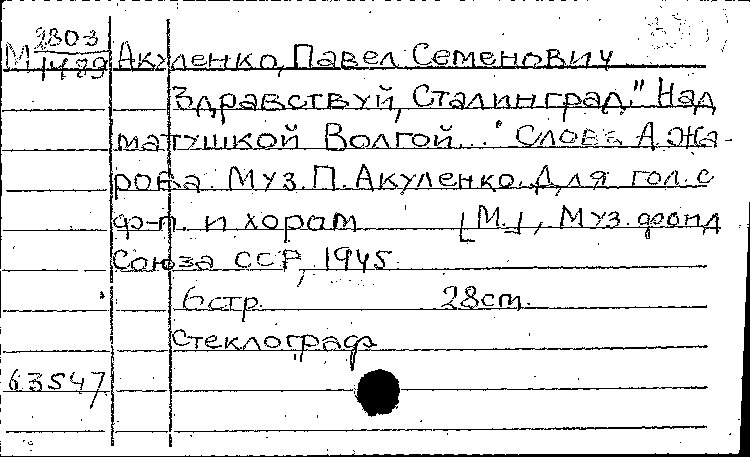 2803
М 1489 Акуленко, Павел Семенович
Здравствуй, Сталинград." Над
матушкой Волгой..." Слова А. Жа-
рова. Муз. П. Акуленко. Для гол. с
ф-п. и хорам [М.], Муз. фонд
Союза ССР, 1945.
6 стр. 28 cm.
Стеклограф
63547